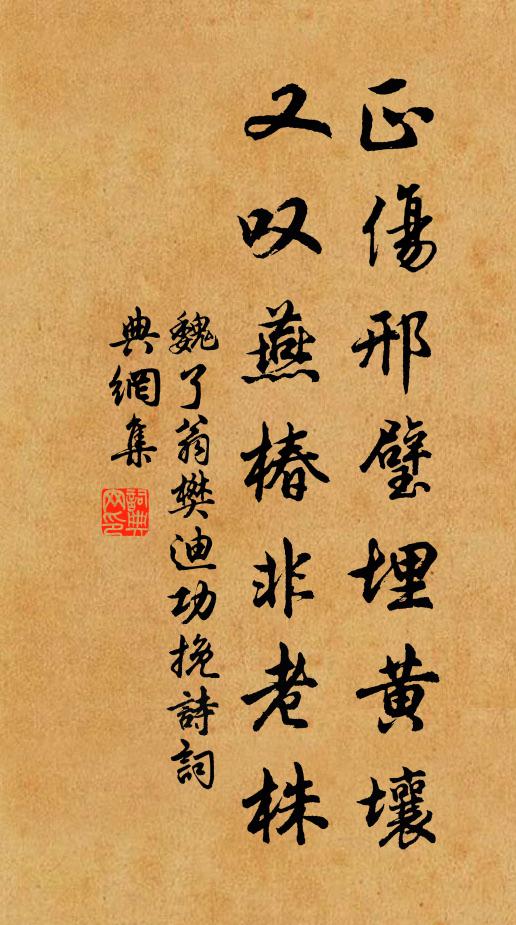 正傷邢璧埋黄壤
又叹燕椿非老株
魏了翁樊迪功挽詩詞
典網集
詞典
网印